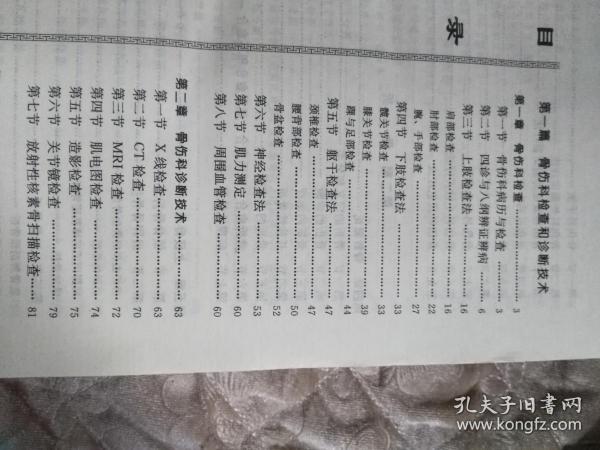 目录
第一篇 骨伤科检查和诊断技术
第一章 骨伤科检查 …… 3
第一节 骨伤科病历与检查 …… 3
第二节 四诊与八纲辨证辨病 …… 6
第三节 上肢检查法 …… 16
肩部检查 …… 16
肘部检查 …… 22
腕、手部检查 …… 27
第四节 下肢检查法 …… 33
髋关节检查 …… 33
膝关节检查 …… 39
踝与足部检查 …… 44
第五节 躯干检查法 …… 47
颈椎检查 …… 47
腰背部检查 …… 50
骨盆检查 …… 52
第六节 神经检查法 …… 53
第七节 肌力测定 …… 60
第八节 周围血管检查 …… 60
第二章 骨伤科诊断技术 …… 63
第一节 X线检查 …… 63
第二节 CT检查 …… 70
第三节 MRI检查 …… 72
第四节 肌电图检查 …… 74
第五节 造影检查 …… 75
第六节 关节镜检查 …… 79
第七节 放射性核素骨扫描检查 …… 81
孔夫子旧书网
www.kongfz.com